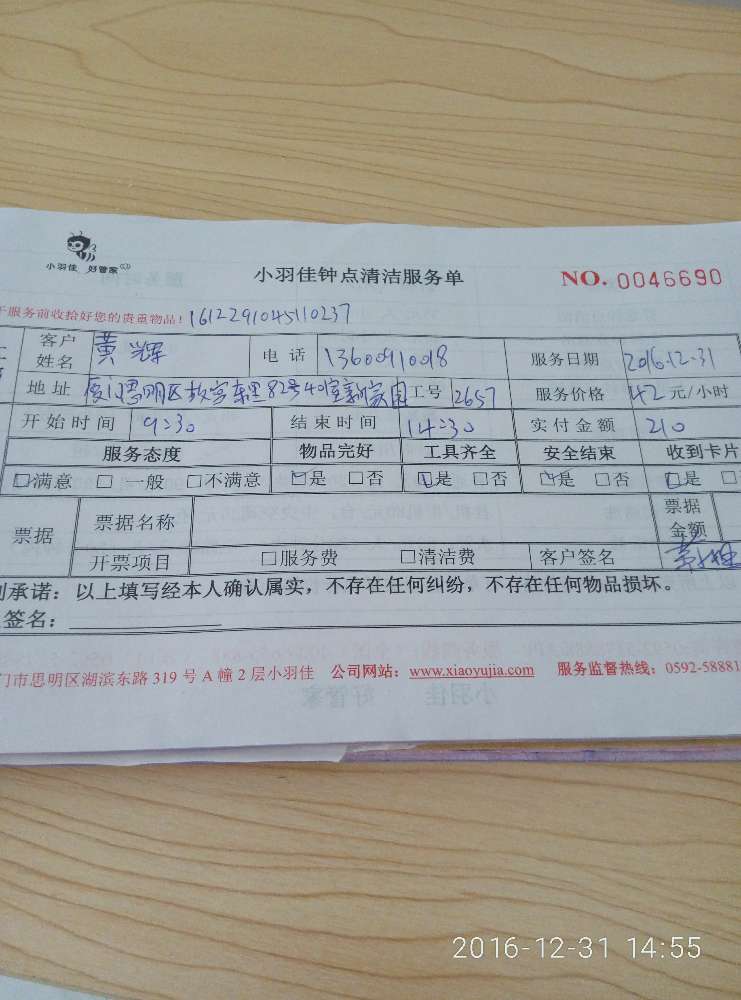 小羽佳 好管家
小羽佳钟点清洁服务单 NO. 0046690
服务前收拾好您的贵重物品! 1612291045110237
客户姓名 黄辉 电话 13600910018 服务日期 2016.12.31
地址 厦门思明区故宫东里82号401室新家园 工号 2657 服务价格 42 元/小时
开始时间 9:30 结束时间 14:30 实付金额 210
服务态度 物品完好 工具齐全 安全结束 收到卡片
□满意 □一般 □不满意 □是 □否 □是 □否 □是 □否 □是
票据 票据名称 票据金额
开票项目 □服务费 □清洁费 客户签名
承诺：以上填写经本人确认属实，不存在任何纠纷，不存在任何物品损坏。
签名：
门市思明区湖滨东路 319 号 A 幢 2 层小羽佳 公司网站：www.xiaoyujia.com 服务监督热线：0592-58881
2016-12-31 14:55